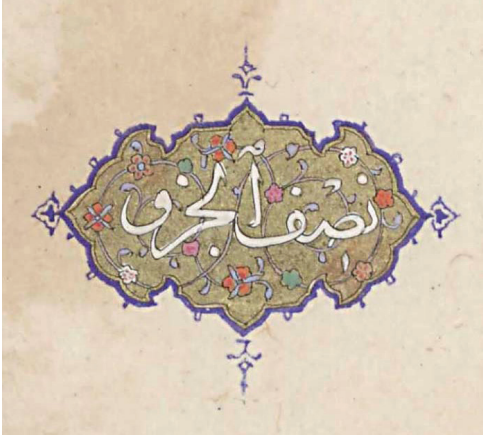 نصف الجزو